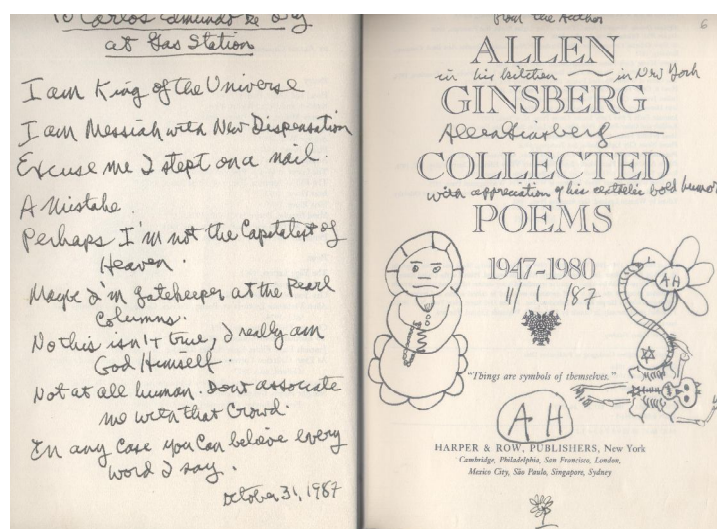 To Carlos Edmundo de Ory
at Gas Station
I am King of the Universe
I am Messiah with New Dispensation
Excuse me I stept on a nail.
A Mistake.
Perhaps I'm not the Capitalist of
Heaven.
Maybe I'm gatekeeper at the Pearl
Columns.
No this isn't true, I really am
God Himself.
Not at all human. Dont associate
me with that Crowd.
In any case you can believe every
word I say.
October 31, 1987
6
from the Author
ALLEN
in his kitchen — in New York
GINSBERG
Allen Ginsberg
COLLECTED
with appreciation of his bold humor
POEMS
1947-1980
11/1/87
AH
"Things are symbols of themselves."
AH
HARPER & ROW, PUBLISHERS, New York
Cambridge, Philadelphia, San Francisco, London,
Mexico City, São Paulo, Singapore, Sydney